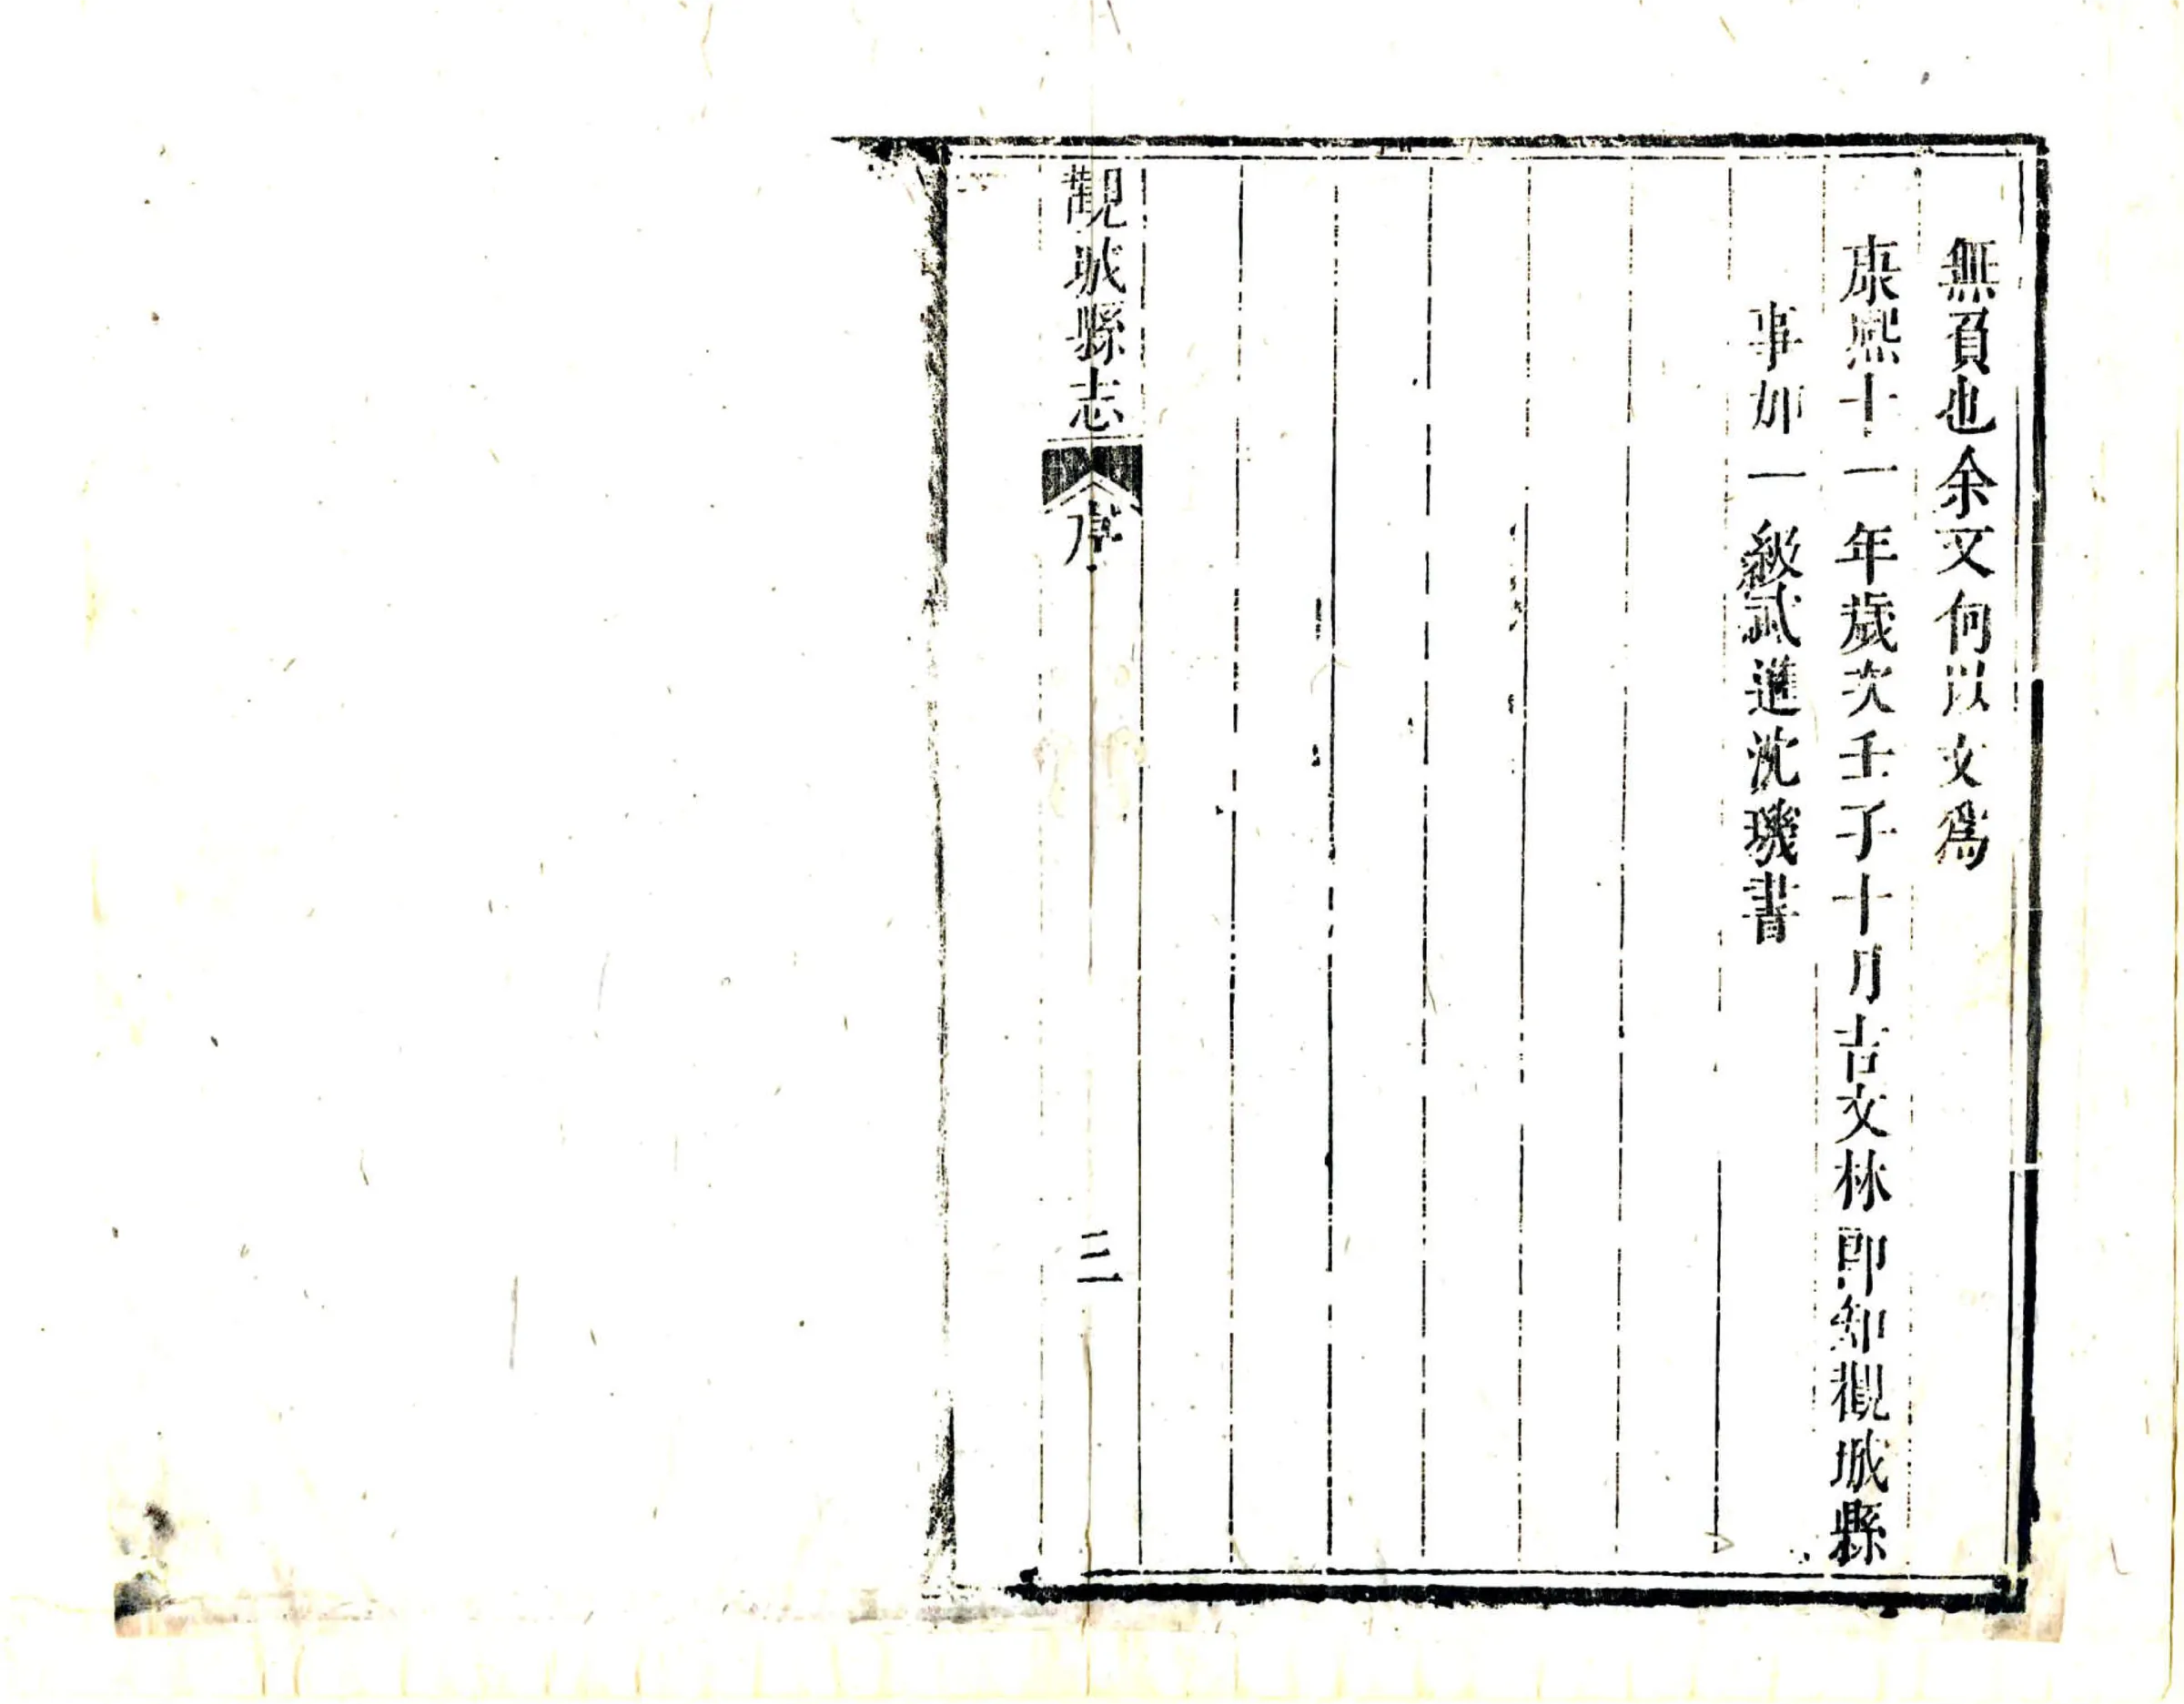 無負也余文何以文爲
康熙十一年歲次壬子十月吉文林郎知觀城縣
事加一級武進沈璣書
觀城縣志
序
三